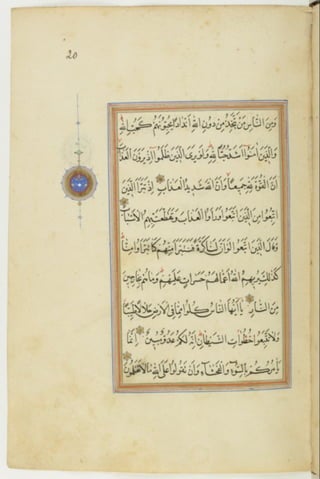 20
وَمِنَ النَّاسِ مَنْ يَتَّخِذُ مِنْ دُونِ اللهِ اَنْدَادًا يُحِبُّونَهُمْ كَحُبِّ اللهِ
وَالَّذِينَ اٰمَنُوا اَشَدُّ حُبًّا لِلّٰهِ وَلَوْ يَرَى الَّذِينَ ظَلَمُوا اِذْ يَرَوْنَ الْعَذَابَ
اَنَّ الْقُوَّةَ لِلّٰهِ جَمِيعًا وَاَنَّ اللهَ شَدِيدُ الْعَذَابِ اِذْ تَبَرَّاَ الَّذِينَ
اتُّبِعُوا مِنَ الَّذِينَ اتَّبَعُوا وَرَاَوُا الْعَذَابَ وَتَقَطَّعَتْ بِهِمُ الْاَسْبَابُ
وَقَالَ الَّذِينَ اتَّبَعُوا لَوْ اَنَّ لَنَا كَرَّةً فَنَتَبَرَّاَ مِنْهُمْ كَمَا تَبَرَّؤُا مِنَّا
كَذٰلِكَ يُرِيهِمُ اللهُ اَعْمَالَهُمْ حَسَرَاتٍ عَلَيْهِمْ وَمَا هُمْ بِخَارِجِينَ
مِنَ النَّارِ يَا اَيُّهَا النَّاسُ كُلُوا مِمَّا فِي الْاَرْضِ حَلَالًا طَيِّبًا
وَلَا تَتَّبِعُوا خُطُوَاتِ الشَّيْطَانِ اِنَّهُ لَكُمْ عَدُوٌّ مُبِينٌ اِنَّمَا
يَأْمُرُكُمْ بِالسُّوءِ وَالْفَحْشَاءِ وَاَنْ تَقُولُوا عَلَى اللهِ مَا لَا تَعْلَمُونَ